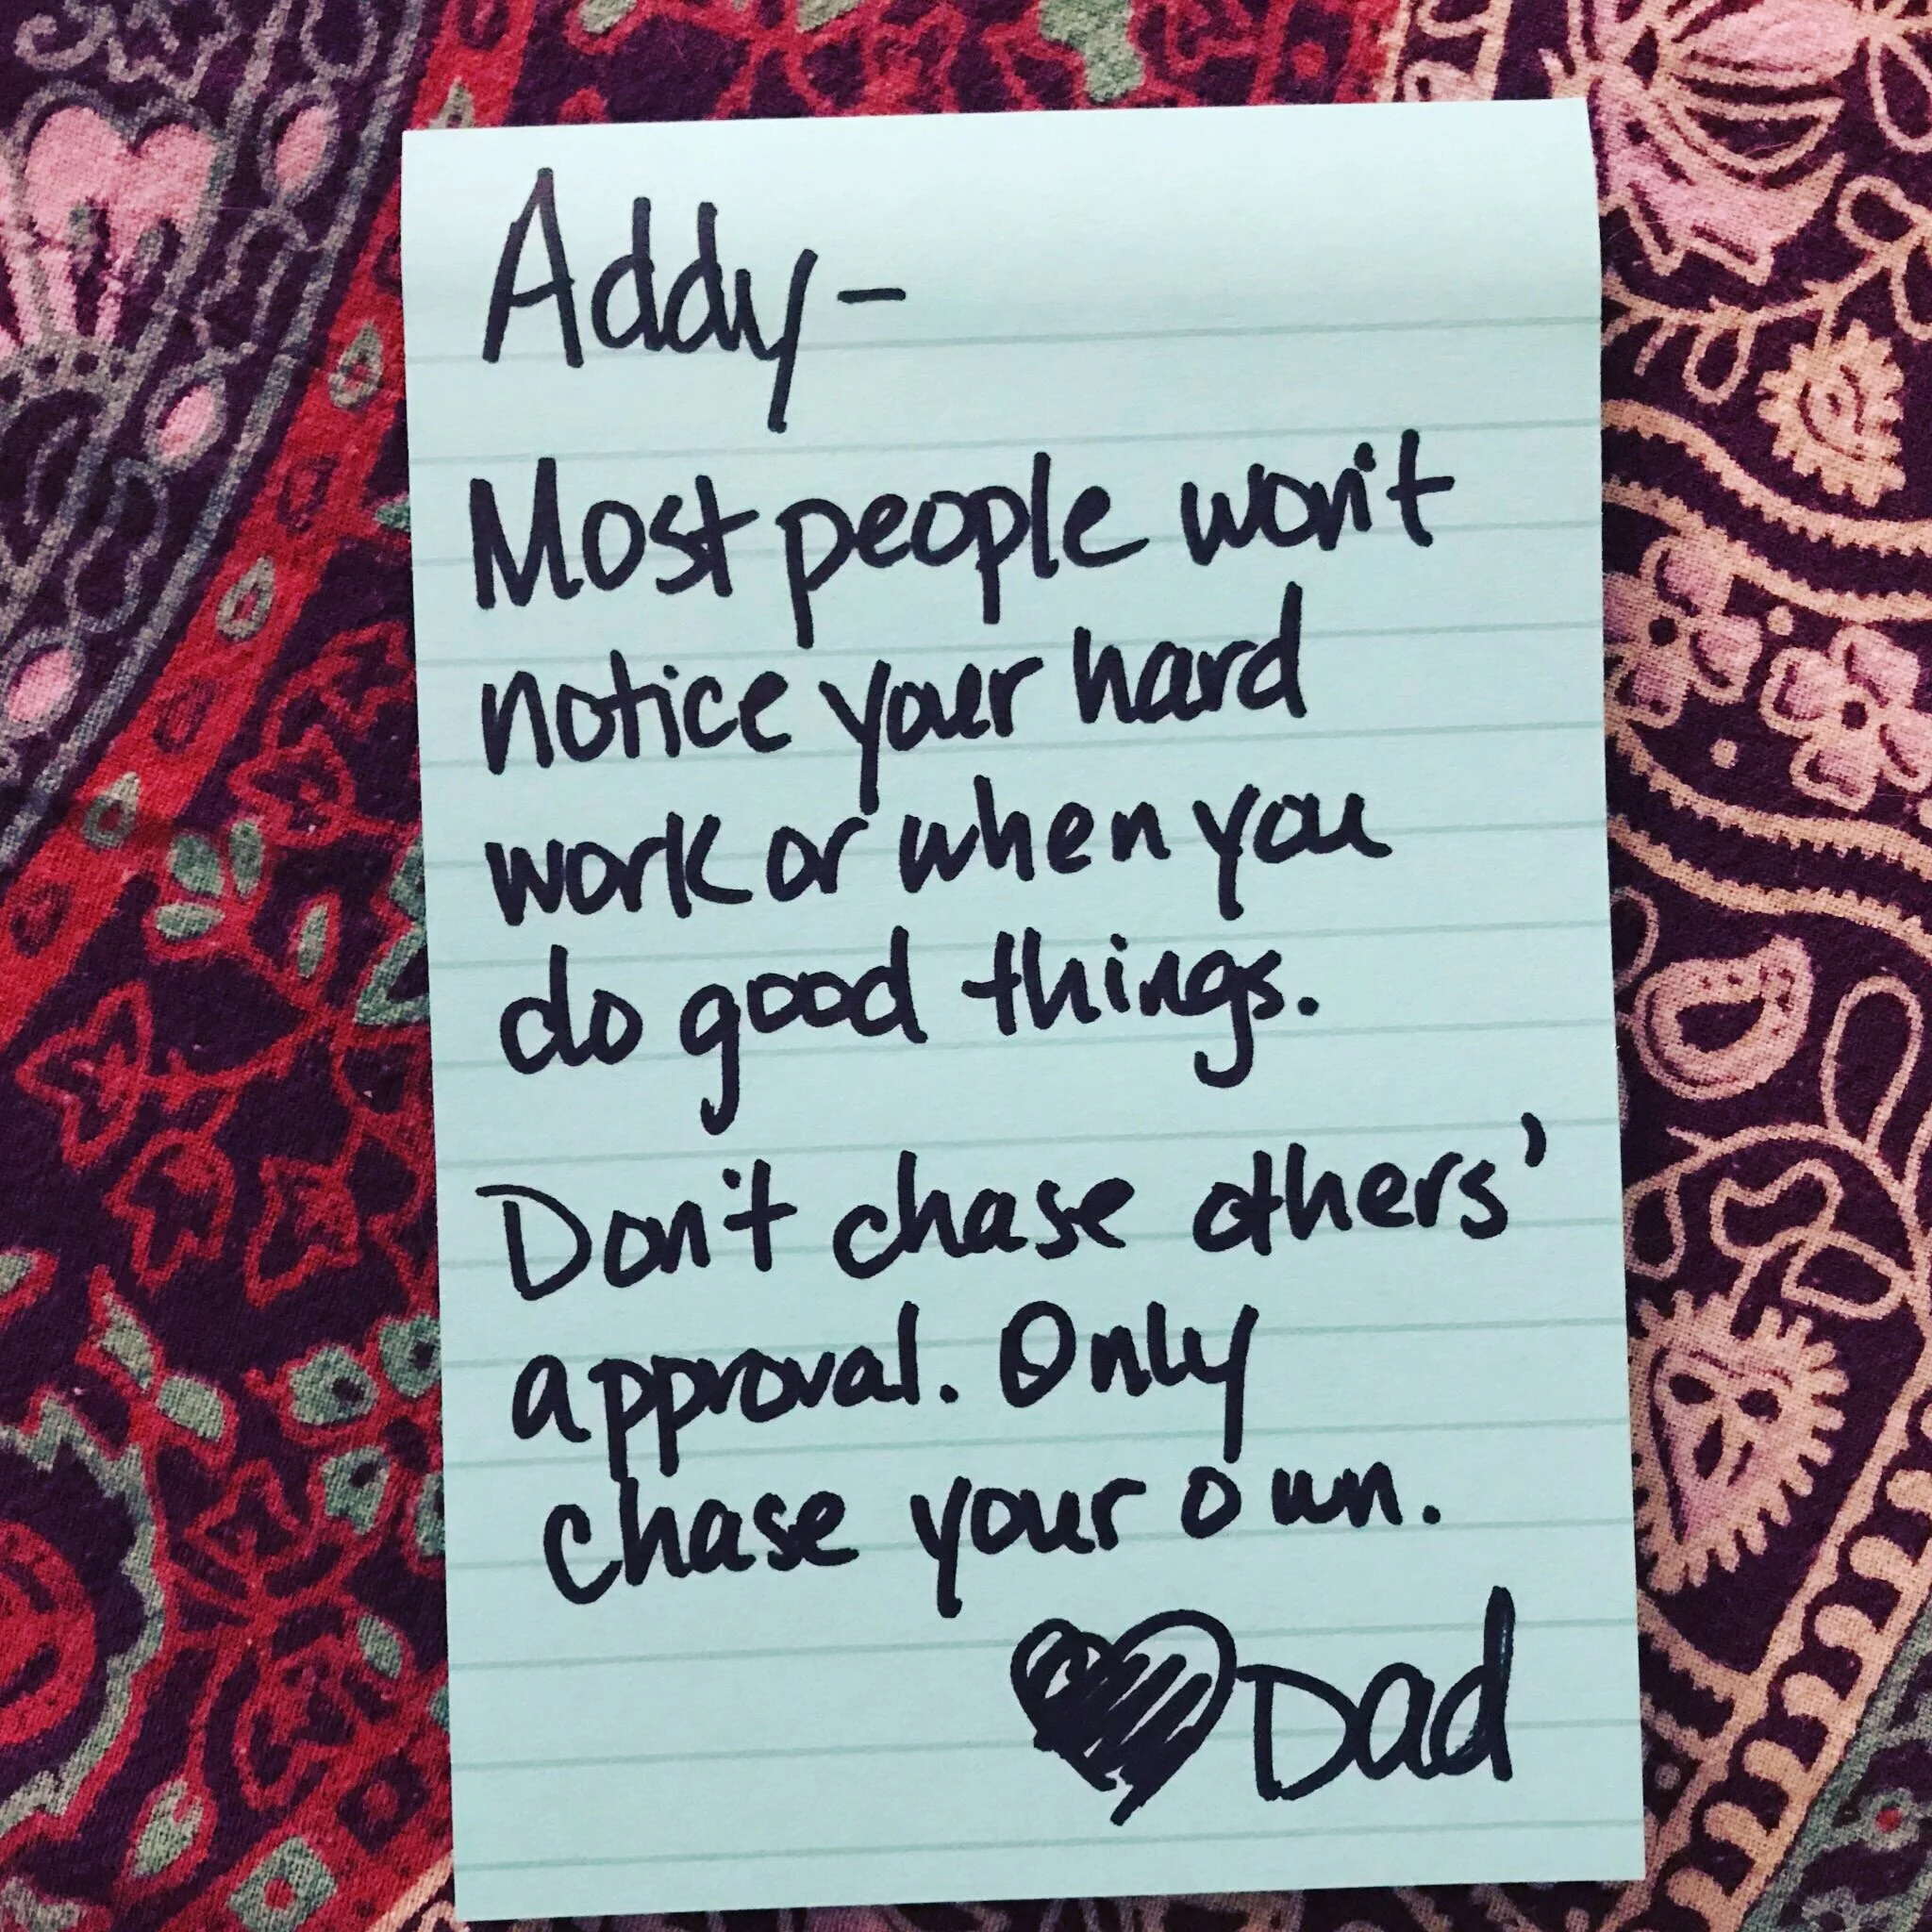 Addy-
Most people won't
notice your hard
work or when you
do good things.
Don't chase others'
approval. Only
chase your own.
Dad